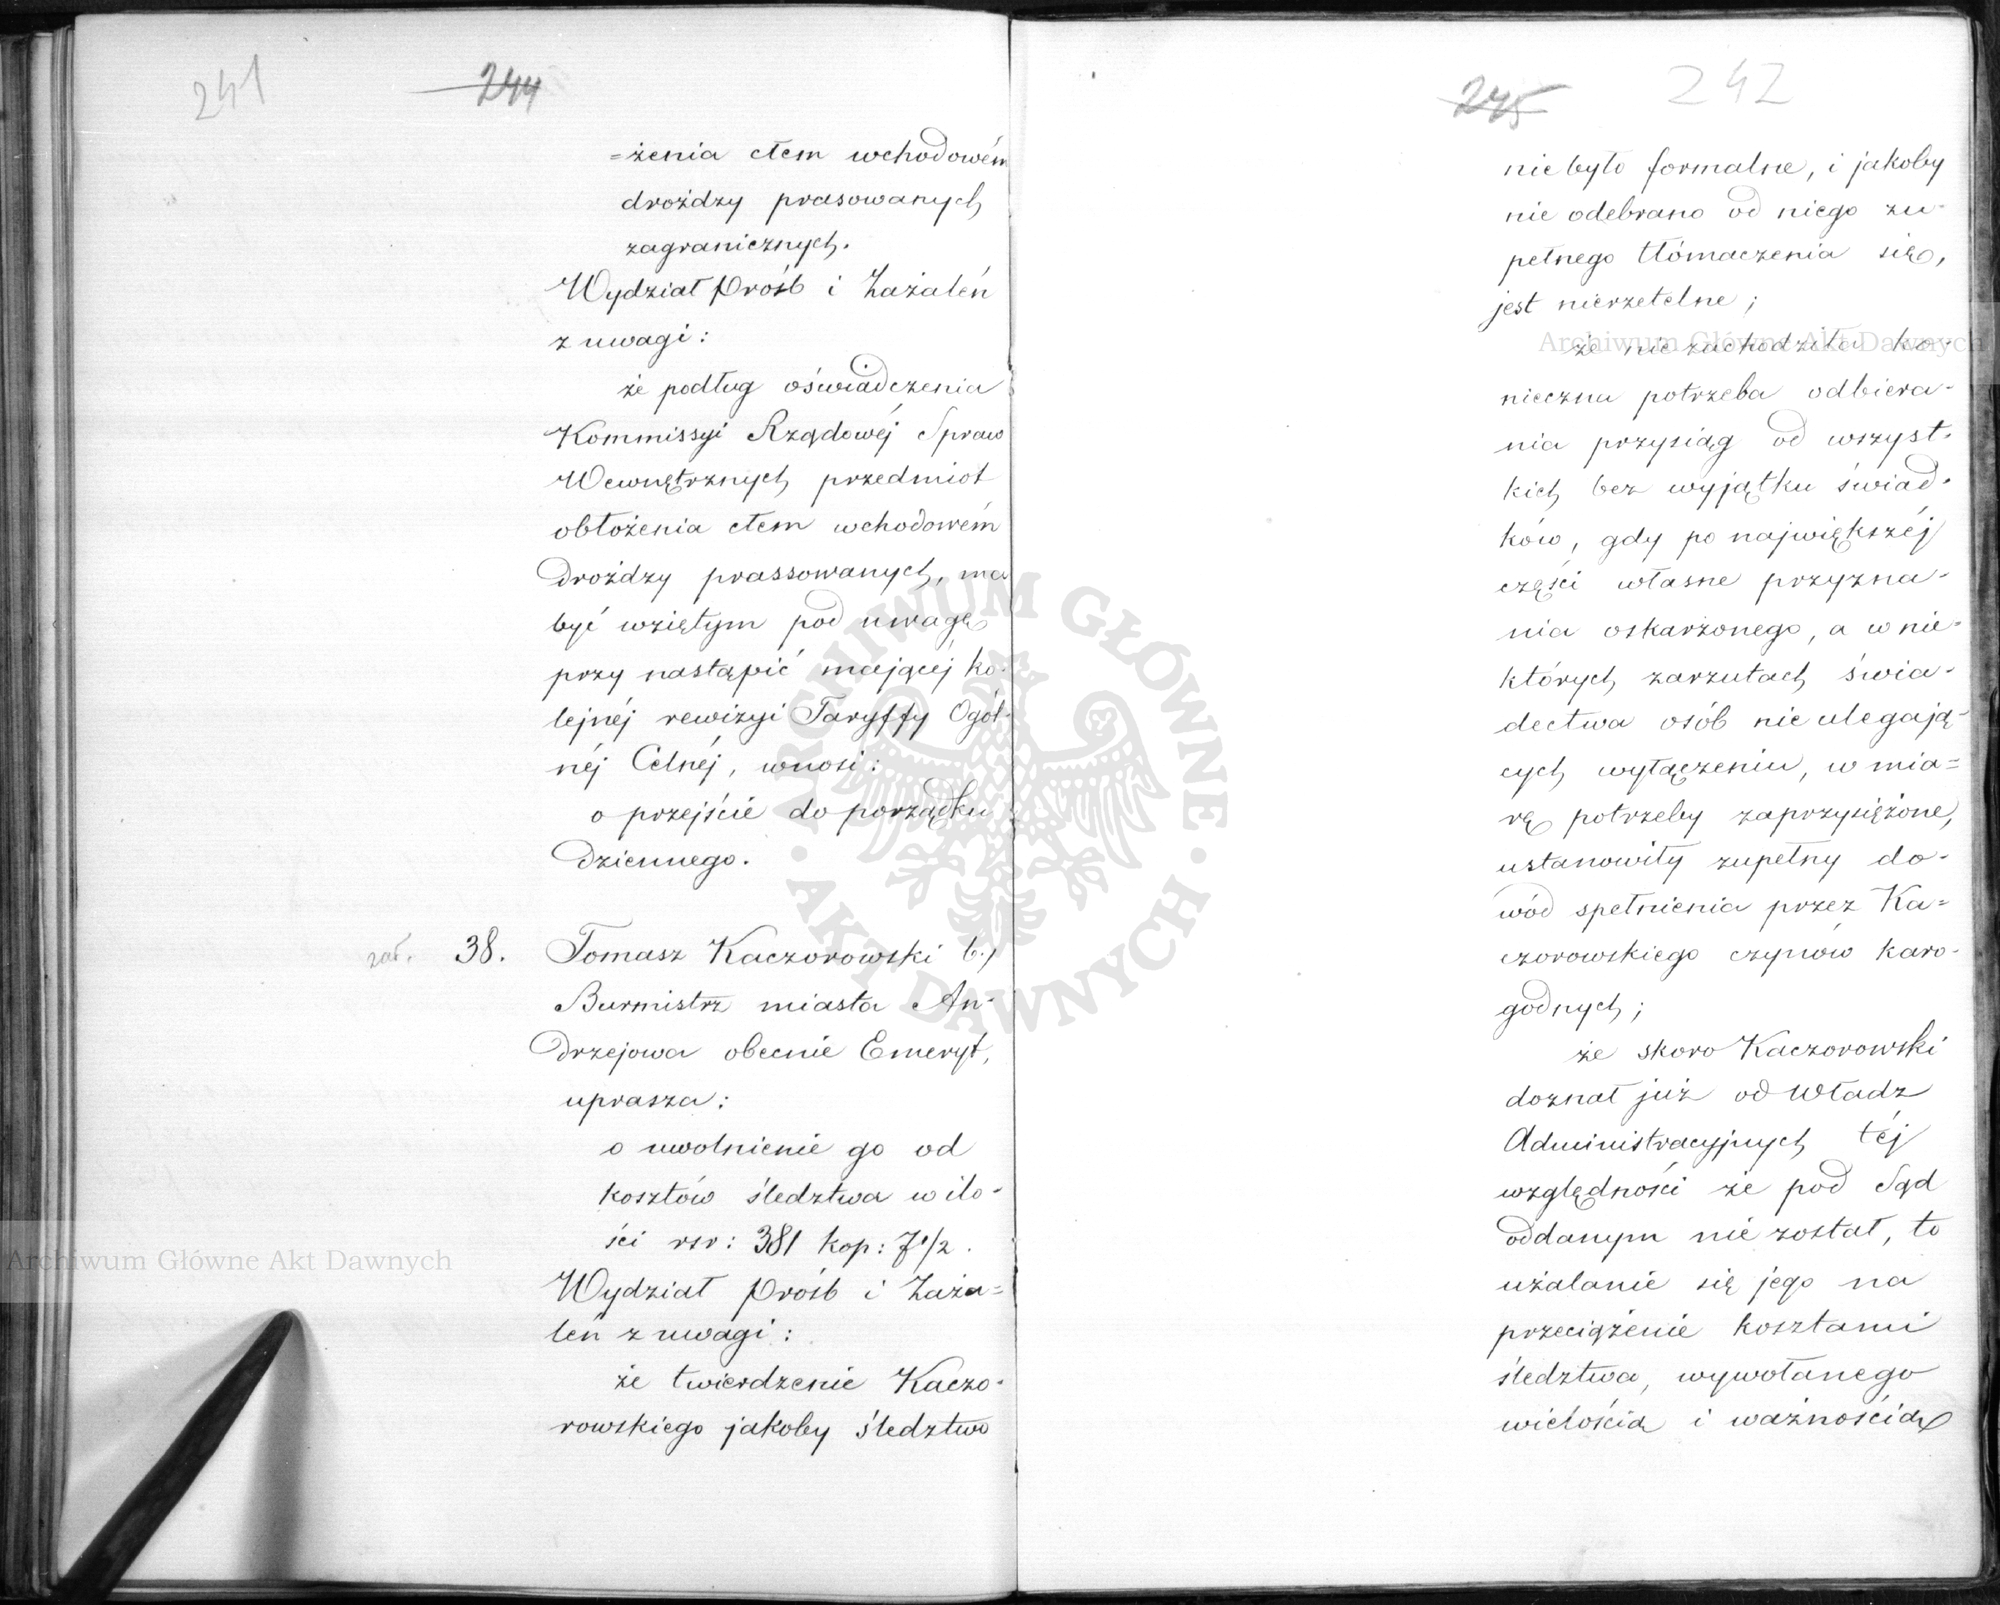 241
244
=żenia cłem wchodowém
drożdży prasowanych
zagranicznych.
Wydział Próśb i Zażaleń
z uwagi:
że podług oświadczenia
Kommissyi Rządowéj Spraw
Wewnętrznych przedmiot
obłożenia cłem wchodowém
drożdży prassowanych, ma
być wziętym pod uwagę
przy nastąpić mającéj ko-
lejnéj rewizyi Taryffy Ogól-
néj Celnéj, wnosi:
o przejście do porządku
dziennego.
zał. 38. Tomasz Kaczorowski b.
Burmistrz miasta An-
drzejowa obecnie Emeryt,
uprasza:
o uwolnienie go od
kosztów śledztwa w ilo-
ści rsr: 381 kop: 7 1/2.
Wydział Próśb i Zaża=
leń z uwagi:
że twierdzenie Kaczo-
rowskiego jakoby śledztwo
245
242
nie było formalne, i jakoby
nie odebrano od niego zu-
pełnego tłómaczenia się,
jest nierzetelne;
że nie zachodziła ko-
nieczna potrzeba odbiera-
nia przysiąg od wszyst-
kich bez wyjątku świad-
ków, gdy po największéj
części własne przyzna-
nia oskarżonego, a w nie-
których zarzutach świa-
dectwa osób nie ulegają-
cych wyłączeniu, w mia=
rę potrzeby zaprzysiężone,
ustanowiły zupełny do-
wód spełnienia przez Ka=
czorowskiego czynów karo-
godnych;
że skoro Kaczorowski
doznał już od Władz
Administracyjnych téj
względności że pod Sąd
oddanym nie został, to
użalanie się jego na
przeciążenie kosztami
śledztwa, wywołanego
wielością i ważnością
Archiwum Główne Akt Dawnych
Archiwum Główne Akt Dawnych
ARCHIWUM GŁÓWNE
AKT DAWNYCH